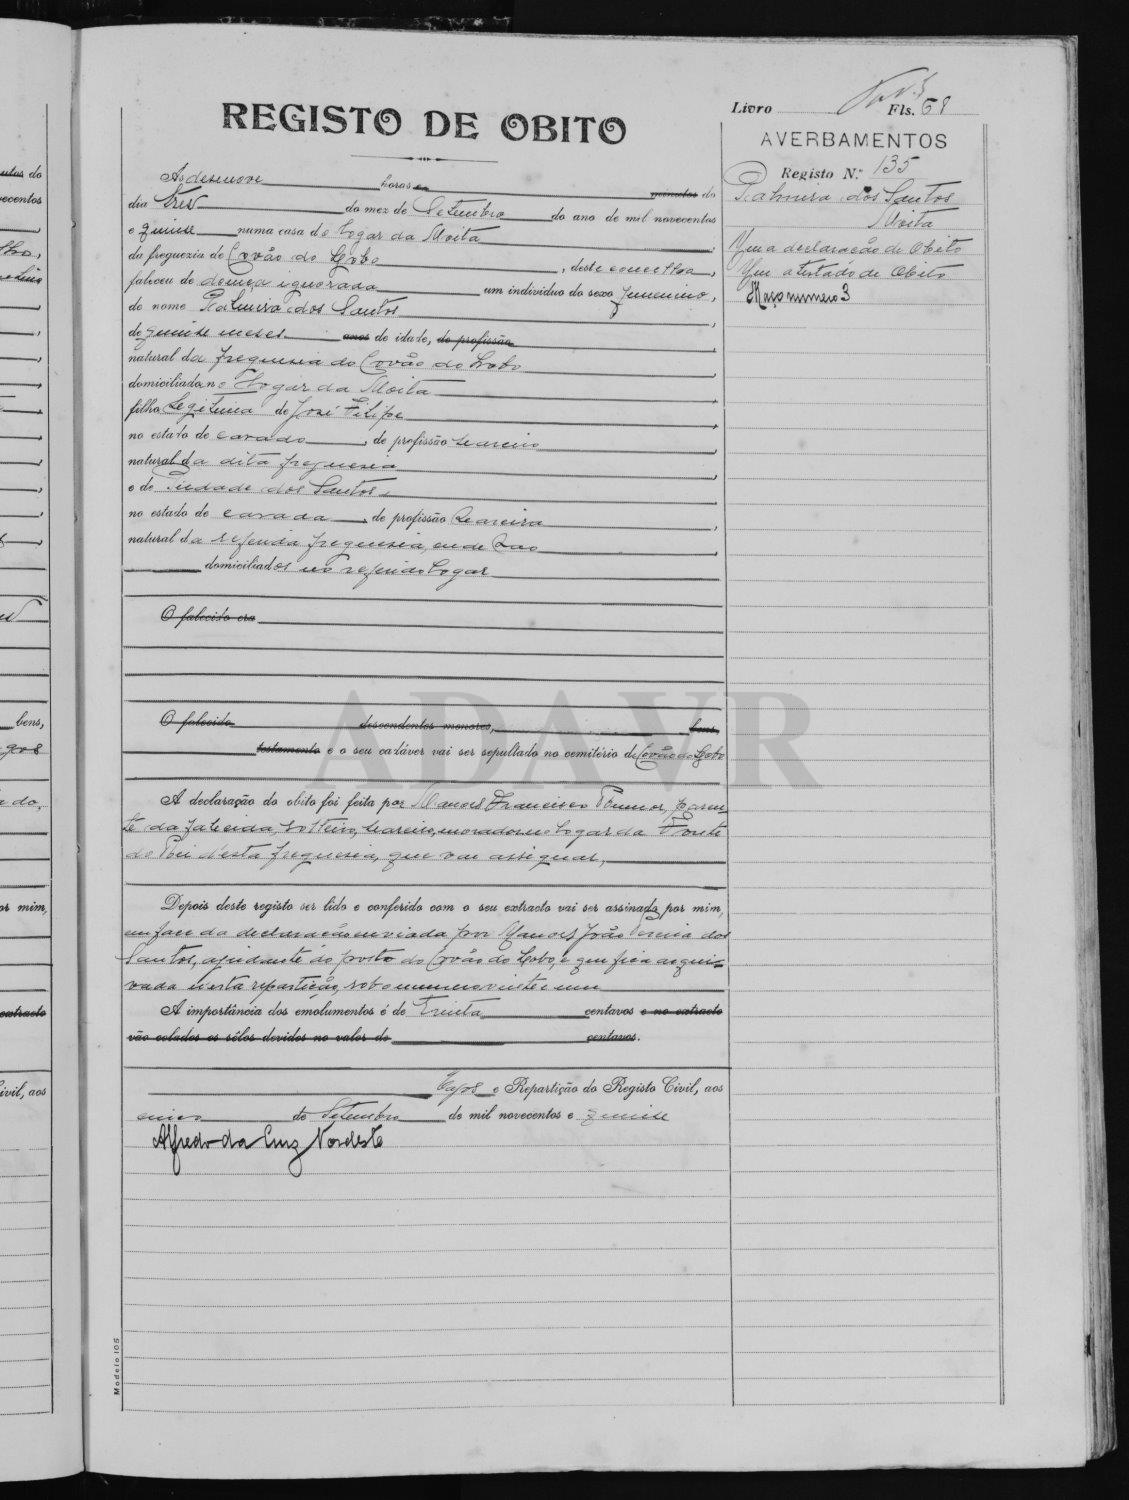 REGISTO DE OBITO
Livro Fls. 68
AVERBAMENTOS
Registo N.º 135
Palmira dos Santos
Moita
Um a declaração de Obito
Um atestado de Obito
Maço numero 3
As desenove horas e minutos do
dia tres do mez de Setembro do ano de mil novecentos
e quinse numa casa do Logar da Moita
da freguezia de Covão do Lobo, deste concelho,
faleceu de doença ignorada um individuo do sexo femenino,
de nome Palmira dos Santos,
de quinse meses anos de idade, de profissão
natural da freguesia do Covão do Lobo,
domiciliada no Logar da Moita,
filha Legitima de José Filipe,
no estado de casado, de profissão seareiro,
natural da dita freguesia,
e de Piedade dos Santos,
no estado de casada, de profissão seareira,
natural da referida freguesia, onde são,
domiciliados no referido Logar
O falecido era
O falecido descendentes menores, bens,
testamento e o seu cadáver vai ser sepultado no cemitério de Covão do Lobo
A declaração do obito foi feita por Manoel Francisco paren-
te da falecida, solteiro, seareiro, morador no Logar da Fonte
do Rei desta freguesia, que vae assignar,
Depois deste registo ser lido e conferido com o seu extracto vai ser assinado por mim,
em face da declaração enviada por Manoel João dos
Santos, ajudante do posto do Covão do Lobo, e que fica arqui-
vada nesta repartição, sob o numero vinte e um
A importância dos emolumentos é de Trinta centavos e no extracto
vão colados os sêlos devidos no valor de centavos.
Vagos e Repartição do Registo Civil, aos
cinco de Setembro de mil novecentos e quinse
Alfredo da Cruz Nordeste
Modelo 105
ADAVR